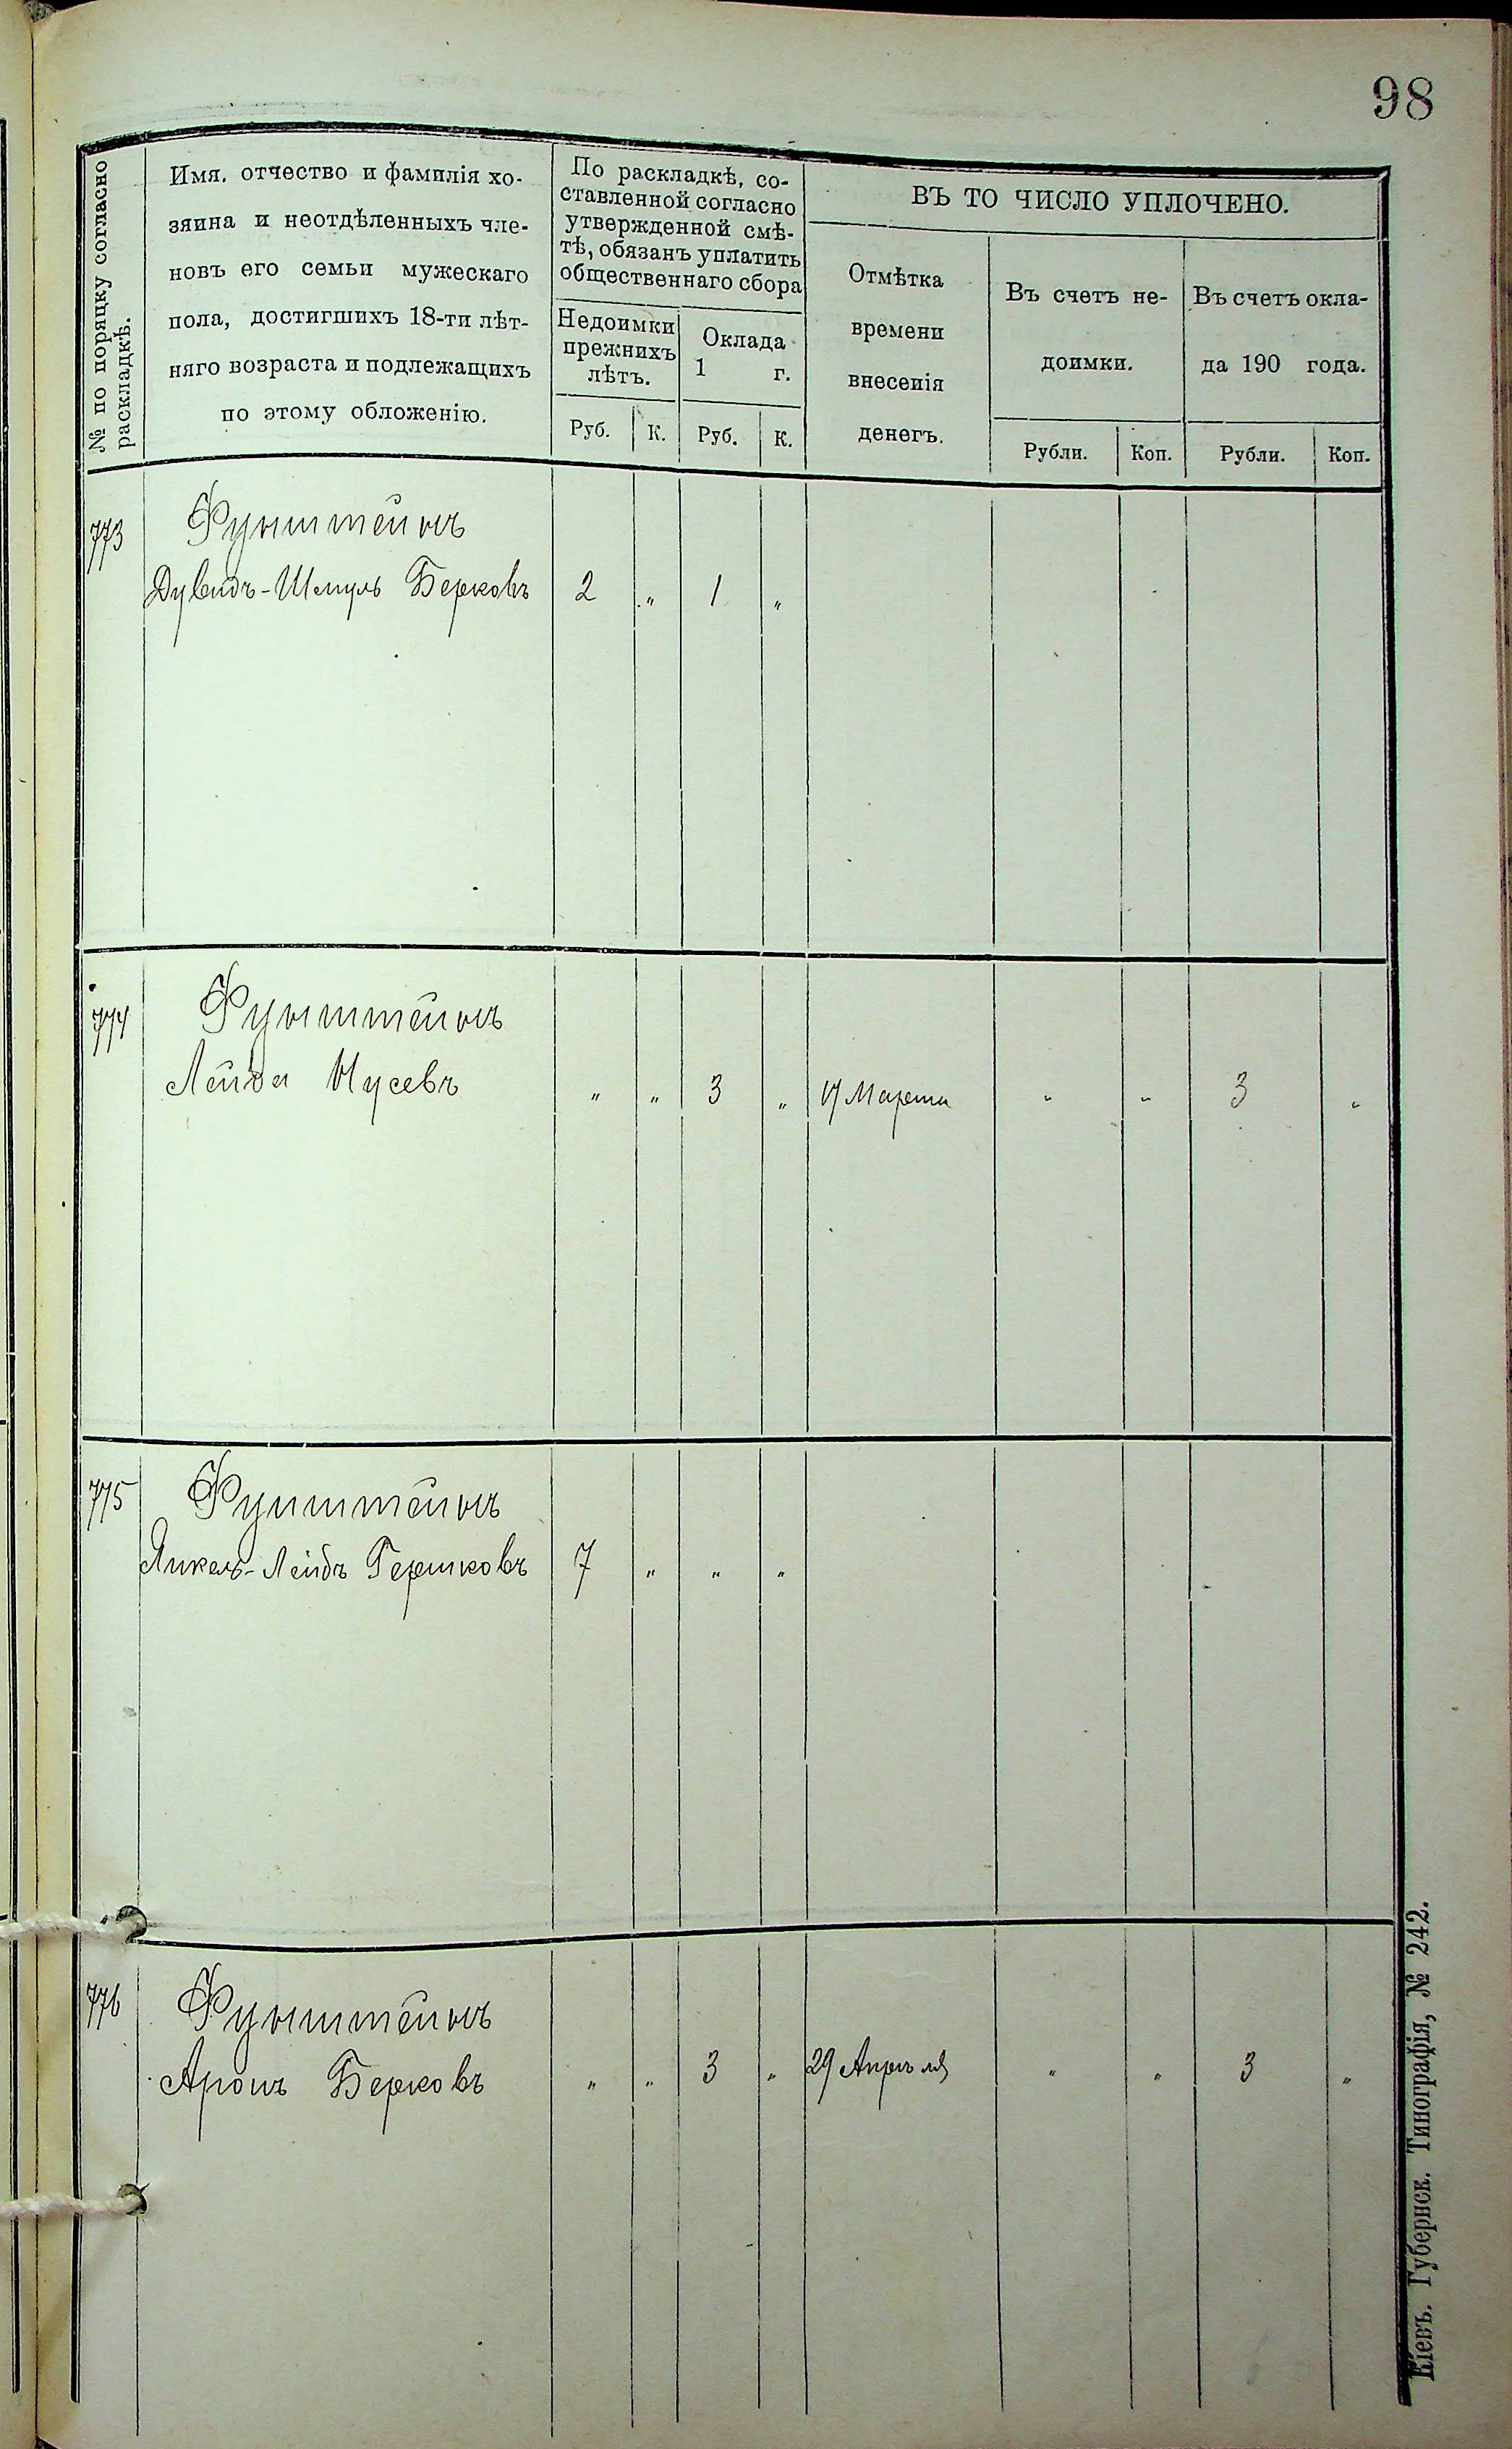 98
№ по порядку согласно
раскладкѣ.
Имя. отчество и фамилія хо-
зяина и неотдѣленныхъ чле-
новъ его семьи мужескаго
пола, достигшихъ 18-ти лѣт-
няго возраста и подлежащихъ
по этому обложенію.
По раскладкѣ, со-
ставленной согласно
утвержденной смѣ-
тѣ, обязанъ уплатить
общественнаго сбора
Недоимки
прежнихъ
лѣтъ.
Оклада
1 г.
Руб. К. Руб. К.
ВЪ ТО ЧИСЛО УПЛОЧЕНО.
Отмѣтка
времени
внесенія
денегъ.
Въ счетъ не-
доимки.
Въ счетъ окла-
да 190 года.
Рубли. Коп. Рубли. Коп.
773 Фунштейнъ
Дувидъ-Шмуль Берковъ 2 „ 1 „
774 Фунштейнъ
Лейба Нусевъ „ „ 3 „ 17 Марта „ „ 3 „
775 Фунштейнъ
Янкель-Лейбъ Гершковъ 7 „ „ „
776 Фунштейнъ
Аронъ Берковъ „ „ 3 „ 29 Апрѣля „ „ 3 „
Кіевъ. Губернск. Типографія, № 242.